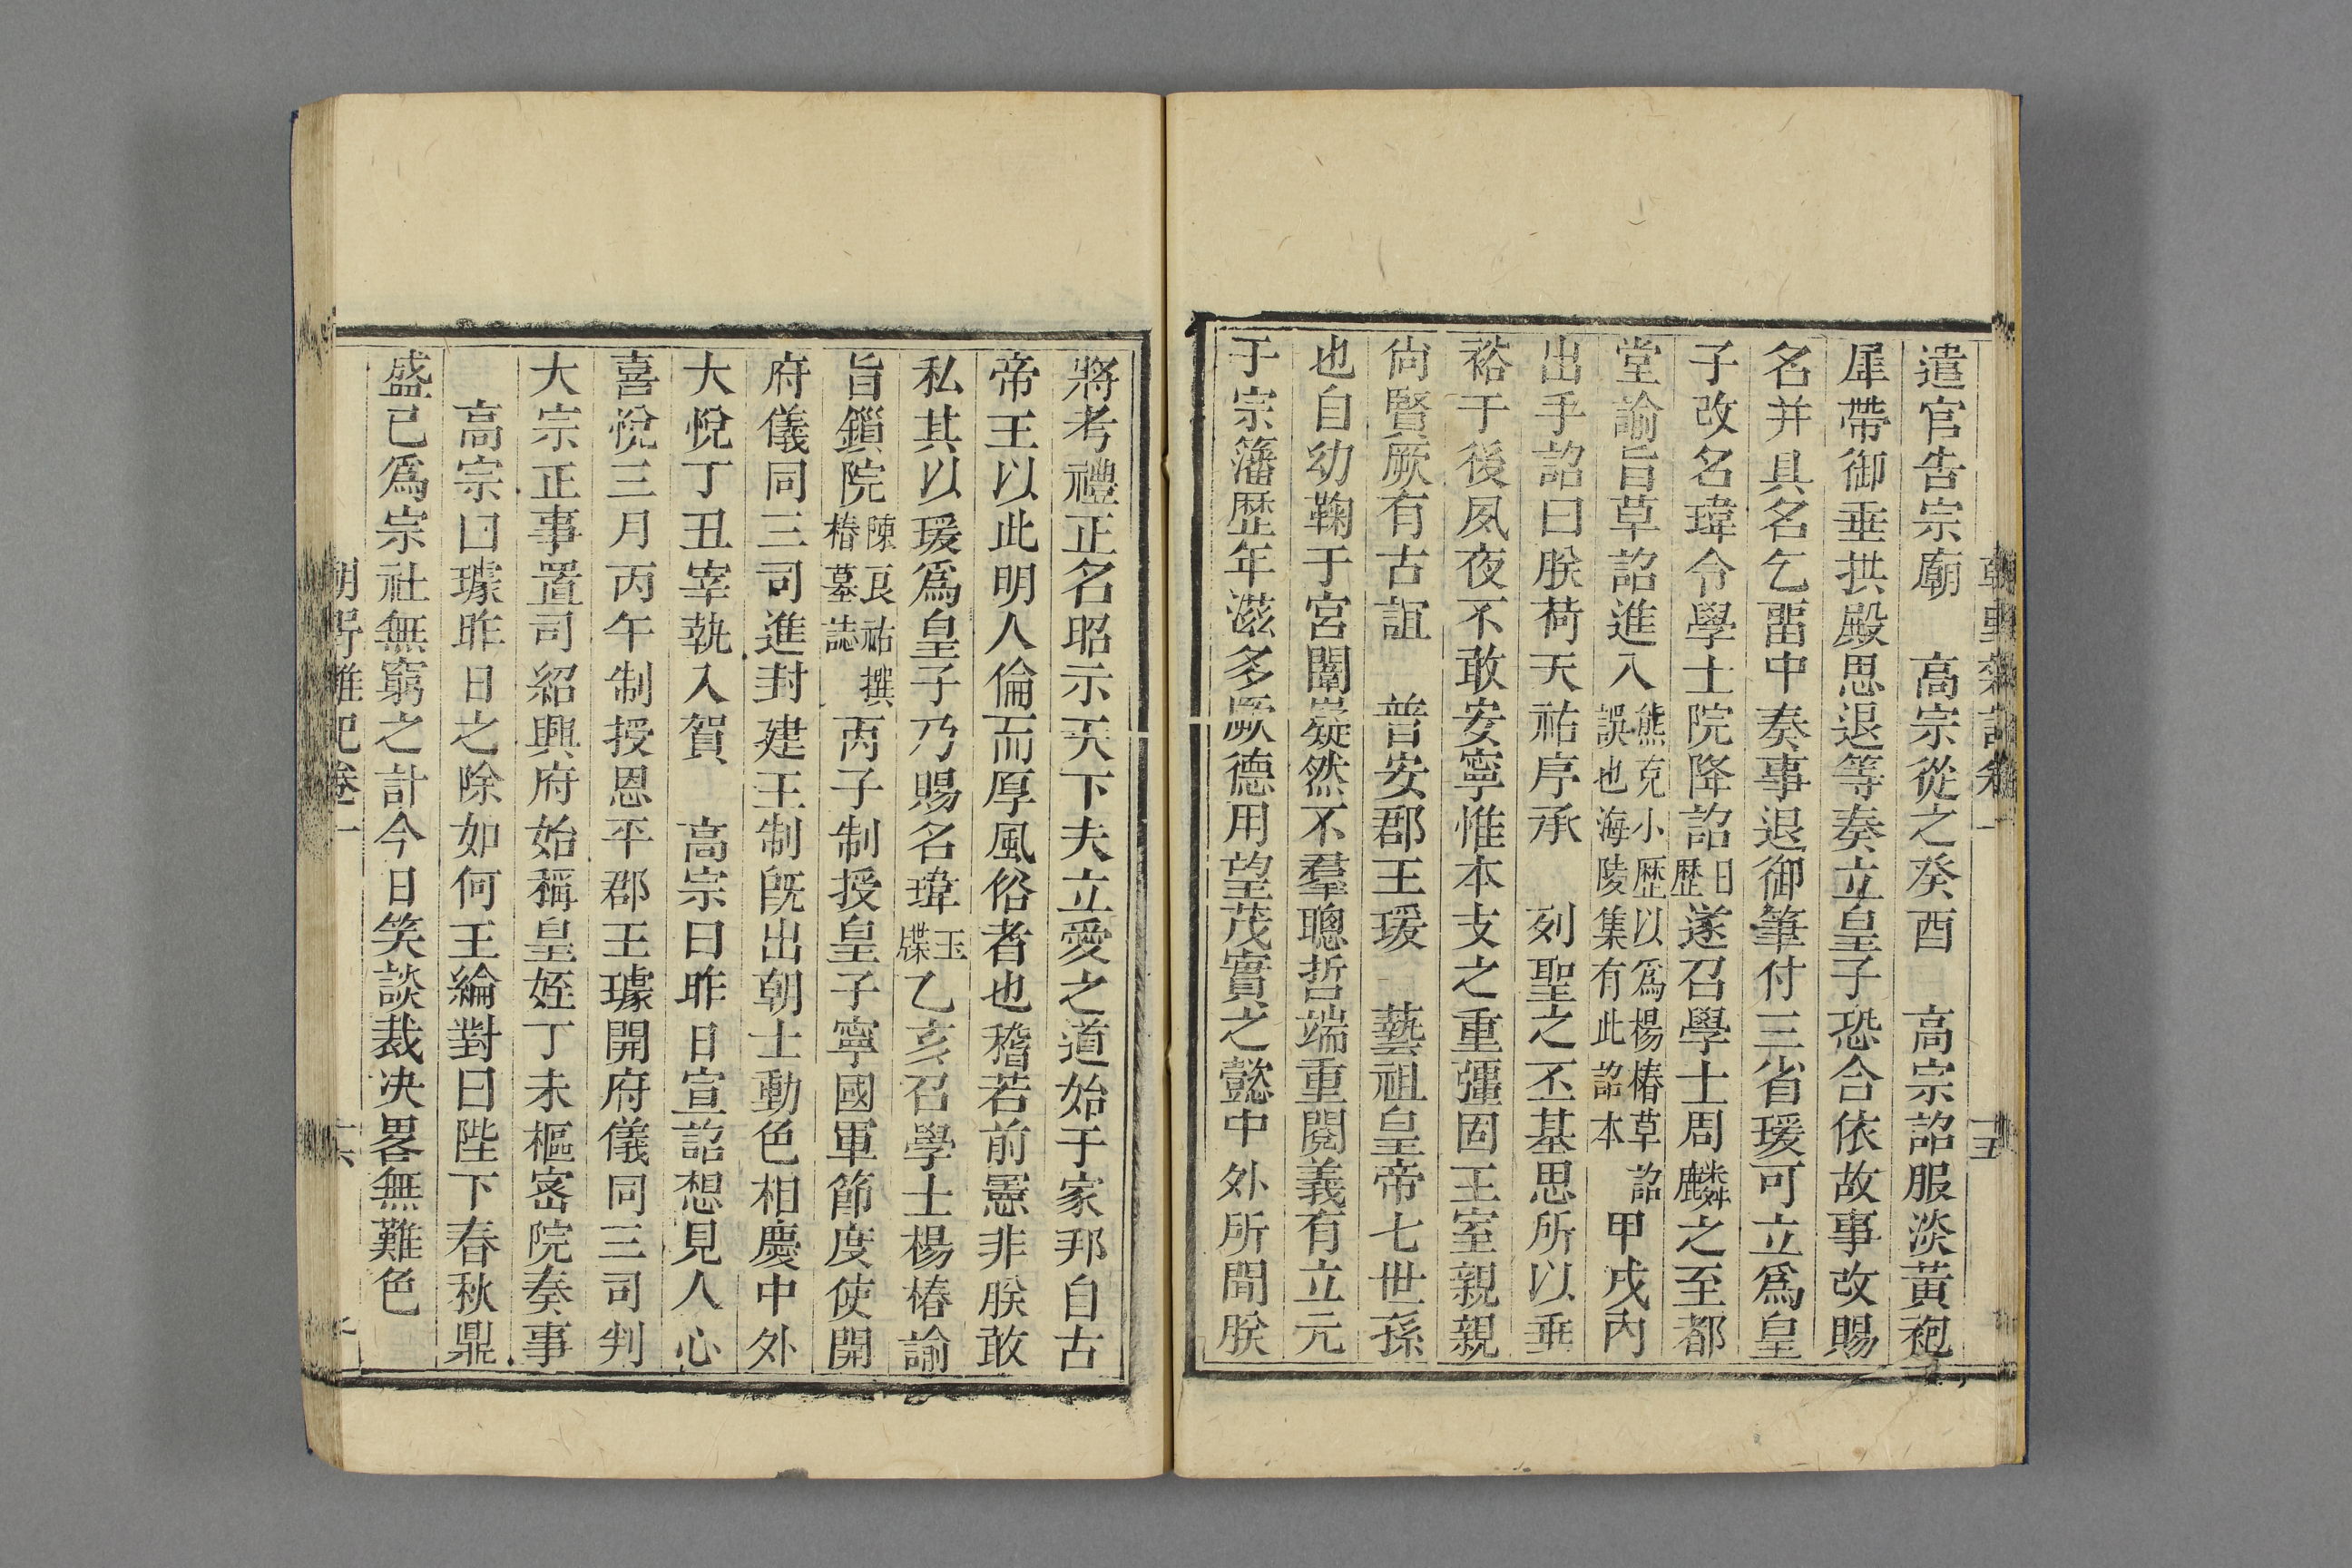 遣官告宗廟　高宗從之癸酉　高宗詔服淡黃袍
犀帶御垂拱殿思退等奏立皇子恐合依故事改賜
名并具名乞畱中奏事退御筆付三省瑗可立爲皇
子改名瑋令學士院降詔日歷遂召學士周麟之至都
堂諭旨草詔進入熊克小歷以爲楊椿草詔誤也海陵集有此詔本甲戌內
出手詔曰朕荷天祐序承　列聖之丕基思所以垂
裕于後夙夜不敢安寧惟本支之重彊固王室親親
尙賢厥有古誼　普安郡王瑗　藝祖皇帝七世孫
也自幼鞠于宮闈嶷然不羣聰哲端重閱義有立元
于宗籓歷年滋多厥德用望茂實之懿中外所聞朕
將考禮正名昭示天下夫立愛之道始于家邦自古
帝王以此明人倫而厚風俗者也稽若前憲非朕敢
私其以瑗爲皇子乃賜名瑋玉牒乙亥召學士楊椿諭
旨鎖院陳良祐撰椿墓誌丙子制授皇子寧國軍節度使開
府儀同三司進封建王制旣出朝士動色相慶中外
大悅丁丑宰執入賀　高宗曰昨日宣詔想見人心
喜悅三月丙午制授恩平郡王璩開府儀同三司判
大宗正事置司紹興府始稱皇姪丁未樞密院奏事
高宗曰璩昨日之除如何王綸對曰陛下春秋鼎
盛已爲宗社無窮之計今日笑談裁决畧無難色